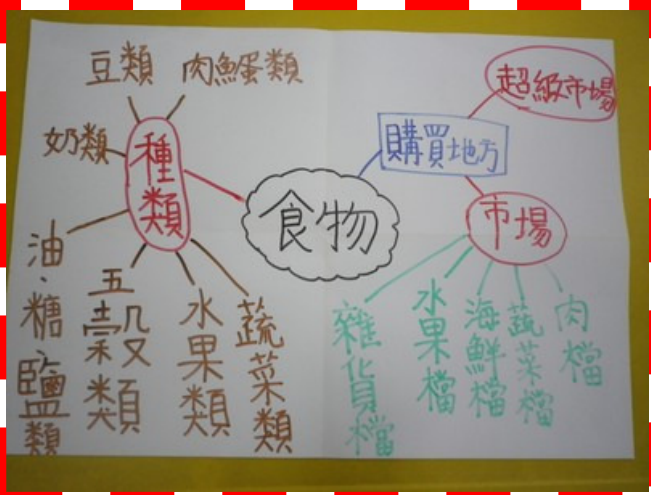 食物
種類
豆類
肉魚蛋類
奶類
油、糖、鹽類
五穀類
水果類
蔬菜類
購買地方
超級市場
市場
雜貨檔
水果檔
海鮮檔
蔬菜檔
肉檔